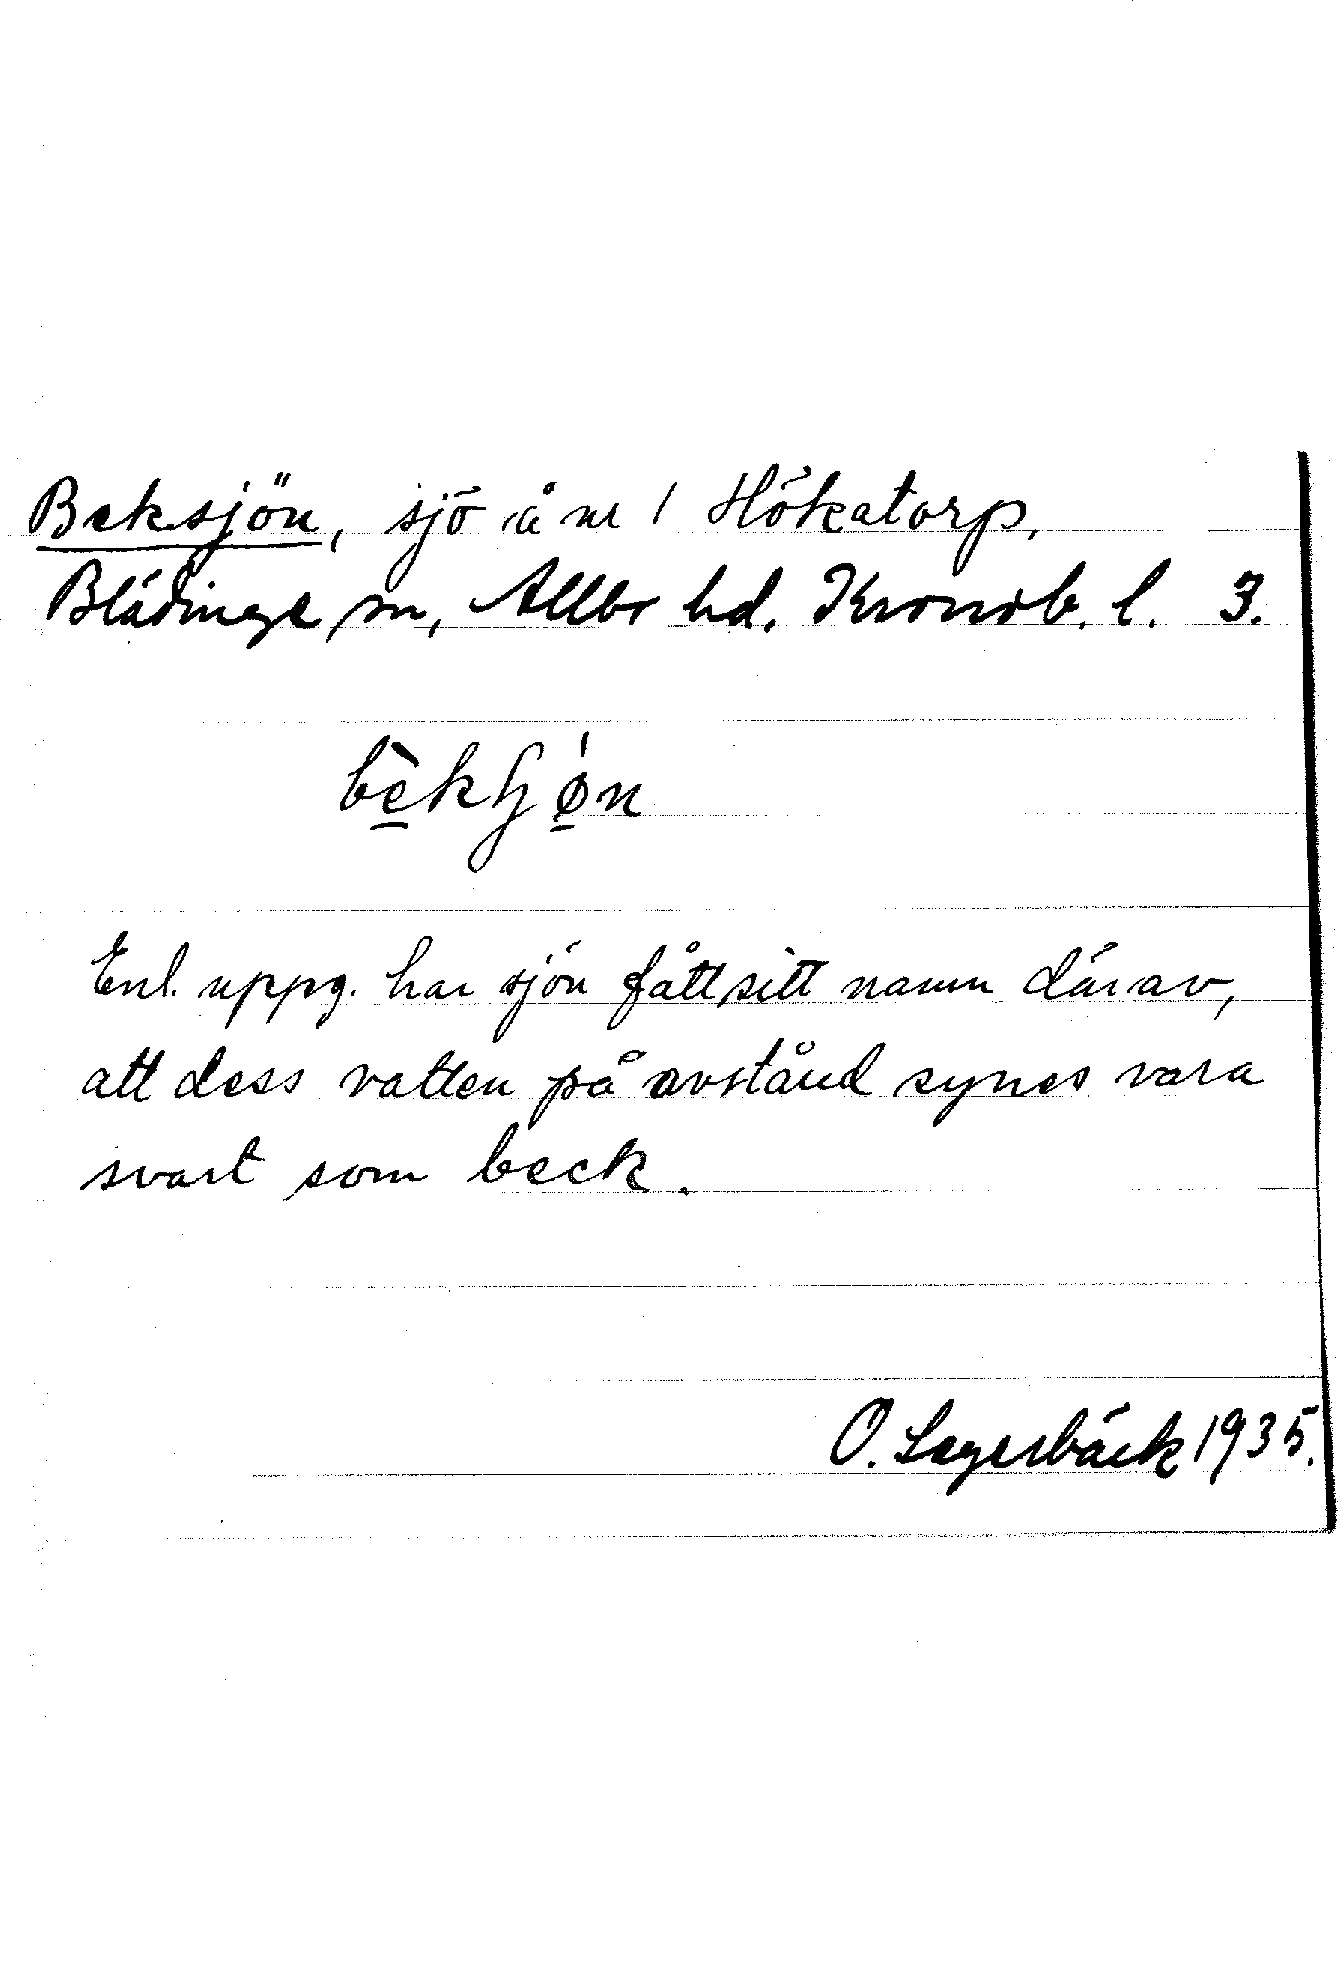 Beksjön, sjö å nr 1 Hökatorp,
Blädinge sn, Allbo hd. Kronob. l. 3.
bèkʃǿn
Enl. uppg. har sjön fått sitt namn därav,
att dess vatten på avstånd synes vara
svart som beck.
O. Lagerbäck 1935.